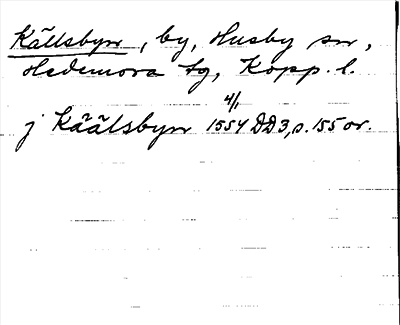 Källsbyn, by, Husby sn,
Hedemora tg, Kopp. l.
j Käälsbyn 4/1 1554 DD3, s. 155 or.